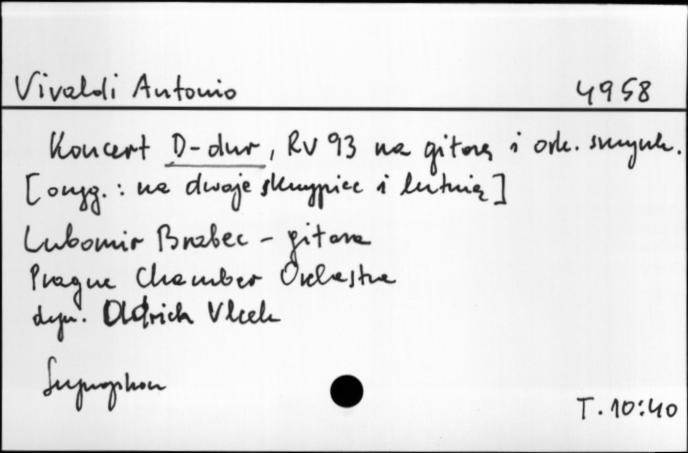 Vivaldi Antonio 4958
Koncert D-dur, RV 93 na gitarę i ork. smyczk.
[oryg.: na dwoje skrzypiec i lutnię]
Lubomir Brabec - gitara
Prague Chamber Orchestra
dyr. Oldrich Vlcek
Supraphon
T. 10:40